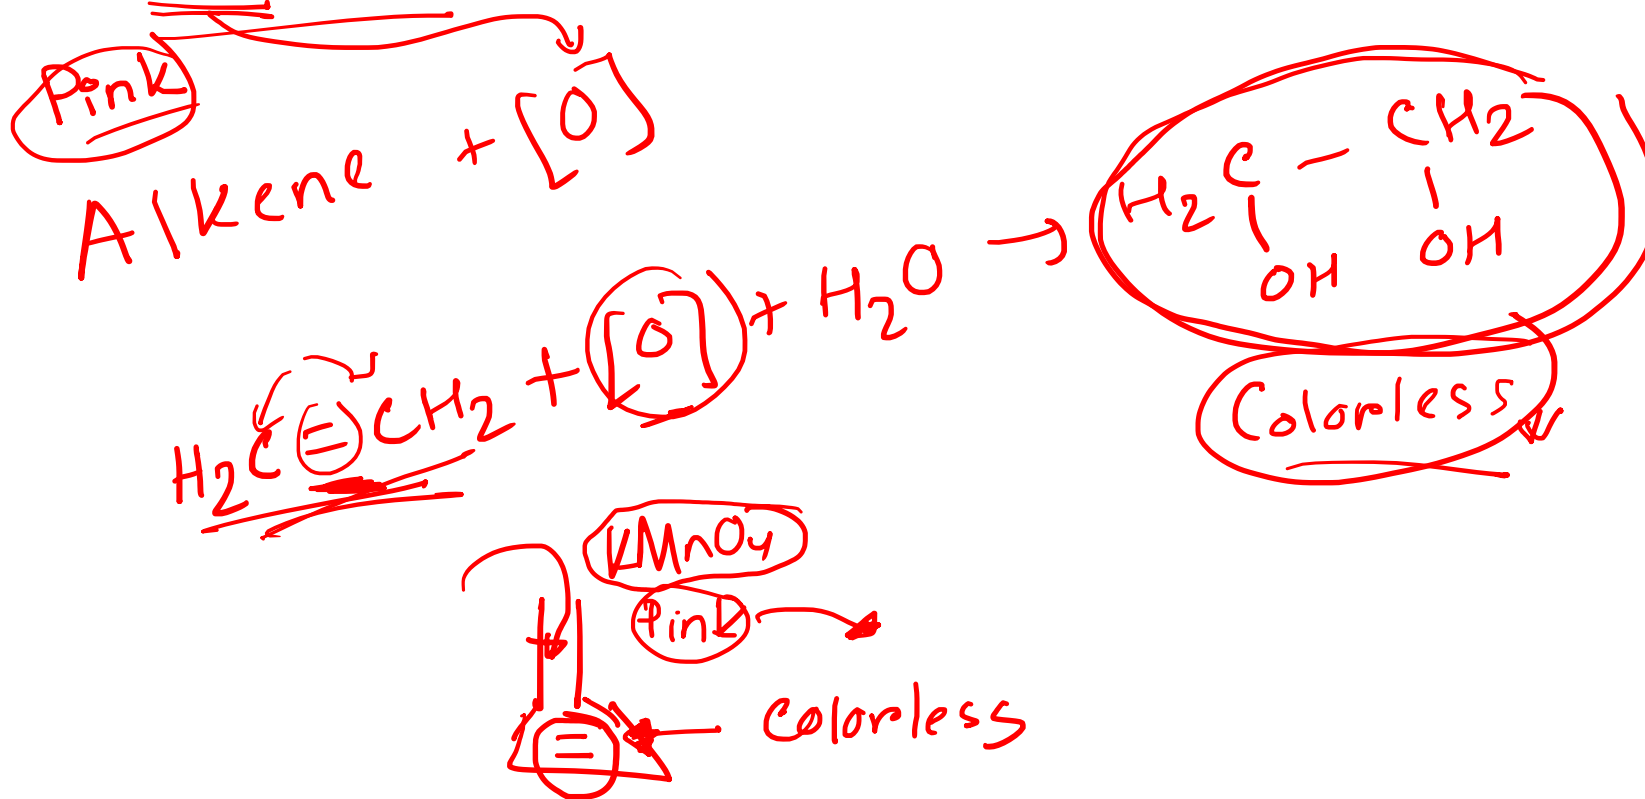 Pink
Alkene + [O]
H2C = CH2 + [O] + H2O → H2C - CH2
OH OH
Colorless
KMnO4
Pink
=
Colorless